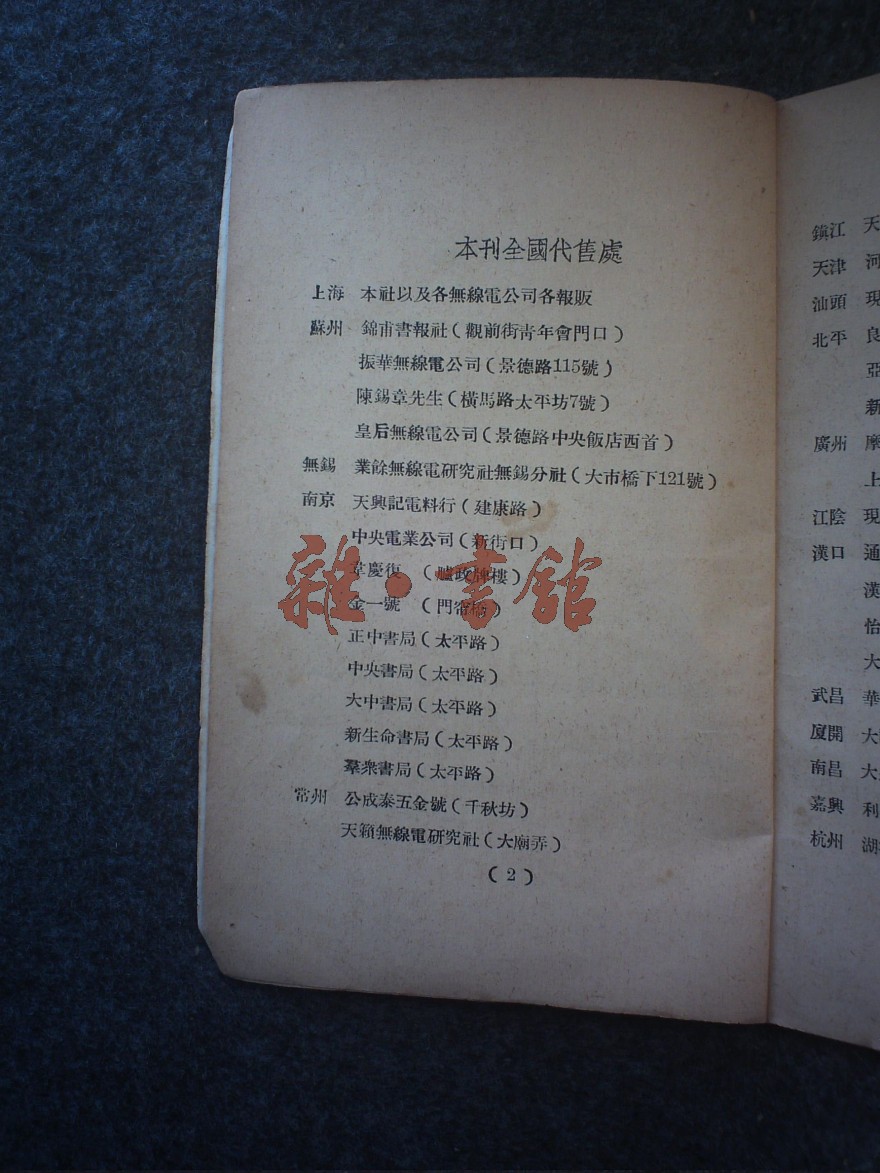 本刊全國代售處
上海 本社以及各無線電公司各報販
蘇州 錦甫書報社(觀前街靑年會門口)
振華無線電公司(景德路115號)
陳錫章先生(橫馬路太平坊7號)
皇后無線電公司(景德路中央飯店西首)
無錫 業餘無線電研究社無錫分社(大市橋下121號)
南京 天興記電料行(建康路)
中央電業公司(新街口)
韋慶復 (政牌樓)
金一號 (門帘橋)
正中書局(太平路)
中央書局(太平路)
大中書局(太平路)
新生命書局(太平路)
羣衆書局(太平路)
常州 公成泰五金號(千秋坊)
天籟無線電研究社(大廟弄)
(2)
雜·書館
鎭江 天
天津 河
汕頭 現
北平 良
亞
新
廣州 摩
上
江陰 現
漢口 通
漢
怡
大
武昌 華
厦開 大
南昌 大
嘉興 利
杭州 湖